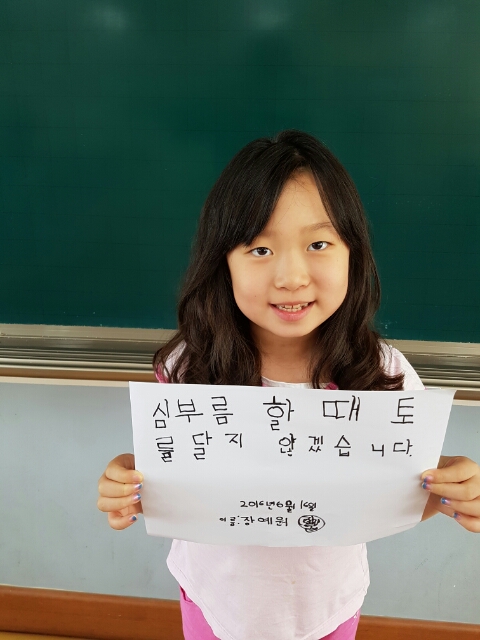 심부름 할 때 토
를 달지 않겠습니다.
2016년 6월 1일
이름:장예원